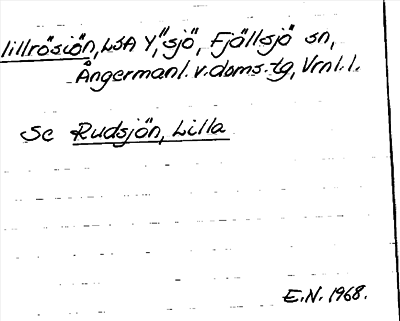 lillrösiön, LSA Y, "sjö", Fjällsjö sn,
Ångermanl. v. doms. tg, Vrnl. l.
Se Rudsjön, Lilla
E.N. 1968.